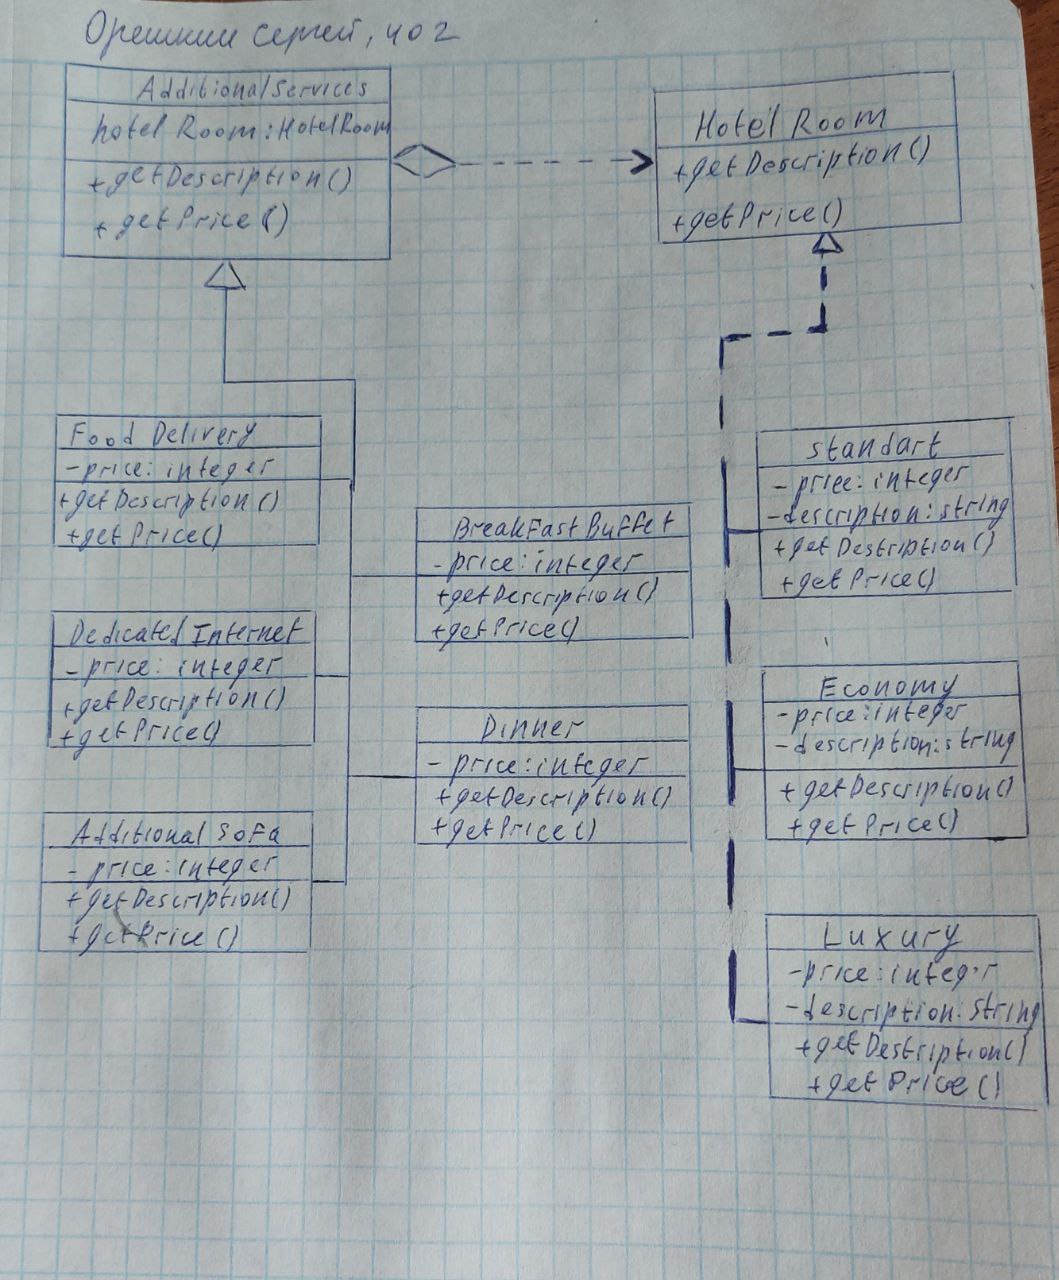 Орешкин Сергей, 402
AdditionalServices
hotel Room:HotelRoom
+getDescription()
+getPrice()
Hotel Room
+getDescription()
+getPrice()
Food Delivery
-price: integer
+getDescription()
+getPrice()
Dedicated Internet
-price: integer
+getDescription()
+getPrice()
Additional Sofa
-price: integer
+getDescription()
+getPrice()
BreakFast Buffet
-price: integer
+getDescription()
+getPrice()
Dinner
-price: integer
+getDescription()
+getPrice()
standart
-price: integer
-description: string
+getDescription()
+getPrice()
Economy
-price: integer
-description: string
+getDescription()
+getPrice()
Luxury
-price: integer
-description: String
+getDescription()
+getPrice()